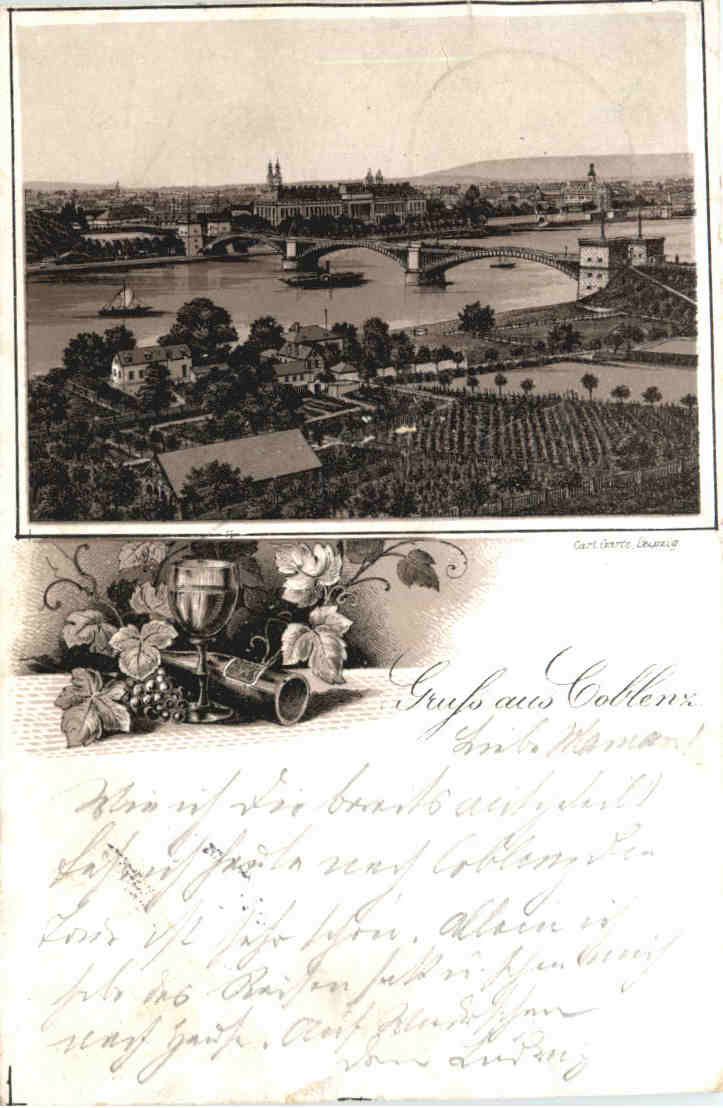 Carl Garte, Leipzig
Gruss aus Coblenz
Liebe Mama!
Wie ich Dir bereits mitgeteilt
fahre ich heute nach Coblenz. Die
ist sehr schön. Allein ich
habe das Reisen satt u. sehne mich
nach Hause. Auf Wiedersehen
Dein Ludwig